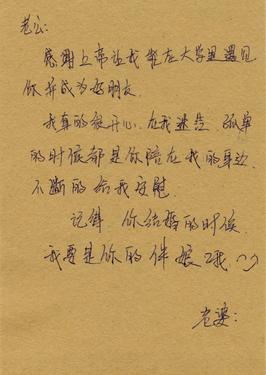 老公:
感谢上帝让我能在大学里遇见
你并成为好朋友.
我真的很开心.在我迷茫、孤单
的时候都是你陪在我的身边.
不断的给我安慰.
记得,你结婚的时候.
我要是你的伴娘哦^_^
老婆: